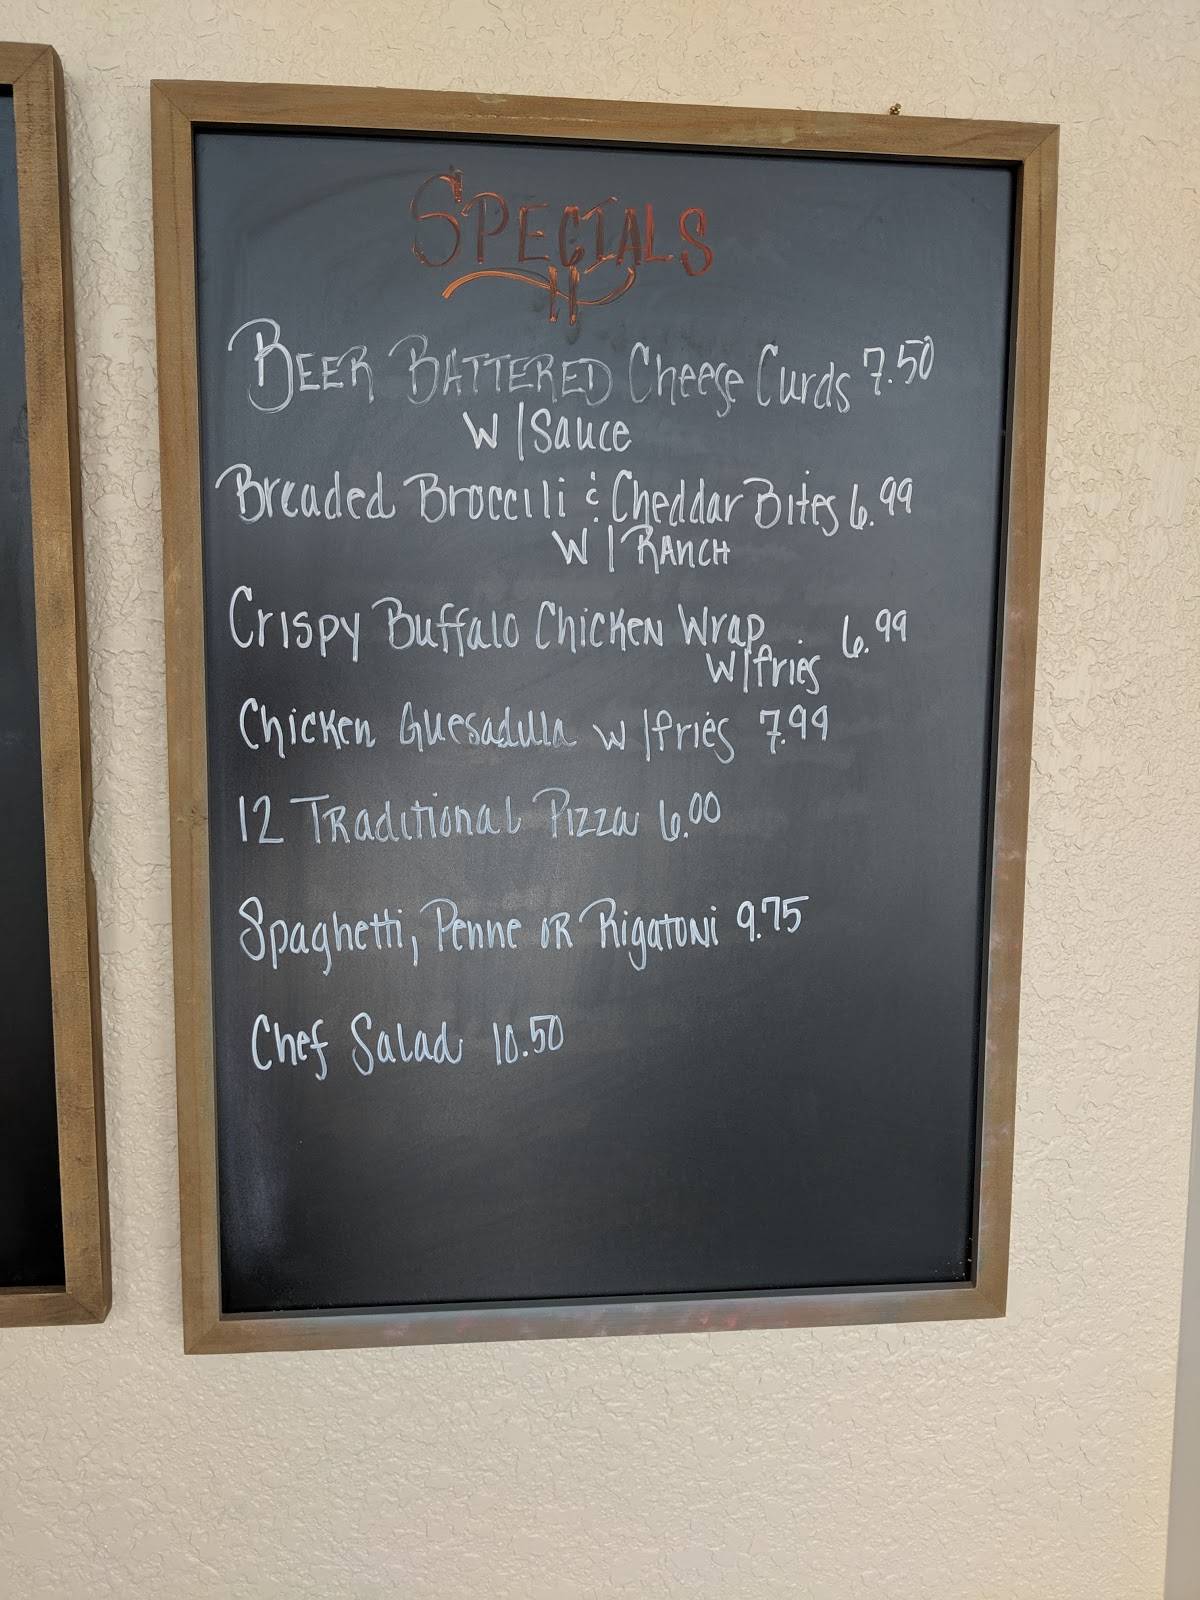 SPECIALS
BEER BATTERED Cheese Curds 7.50
W/Sauce
Breaded Broccili & Cheddar Bites 6.99
W/RANCH
Crispy Buffalo Chicken Wrap 6.99
W/fries
Chicken Quesadulla w/fries 7.99
12 Traditional Pizza 6.00
Spaghetti, Penne OR Rigatoni 9.75
Chef Salad 10.50